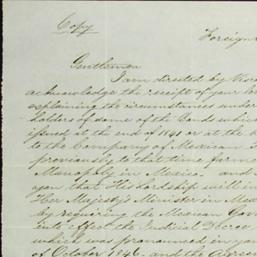 Copy
Foreign
Gentlemen
I am directed by
acknowledge the receipt of your
explaining the circumstances under
Holders of some of the Bonds which
issued at the end of 1841 or at the
to the Company of Mexican
previously to that time farme
Monopoly in Mexico. and
you that His Lordship will in
Her Majesty's Minister in Mex
by requiring the Mexican Gov
into effect the Judicial Decree
which was pronounced in
of October 1846. and the Agree